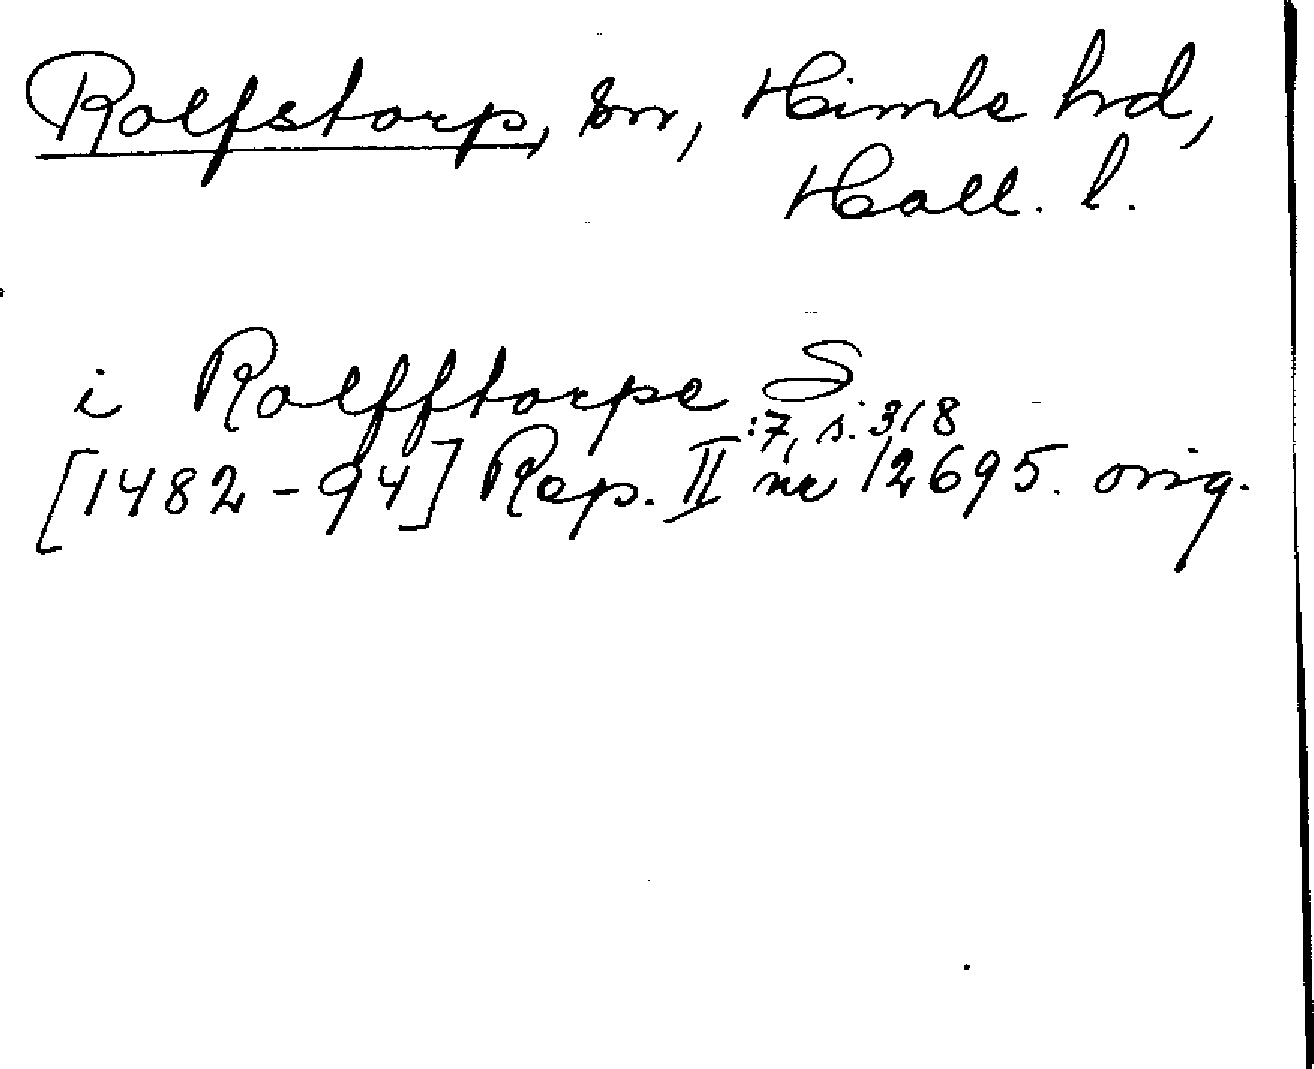 Rolfstorp, sn, Himle hd,
Hall. l.
i Rolfftorpe S
:7, s. 318
[1482-94] Rep. II nr 12695. orig.